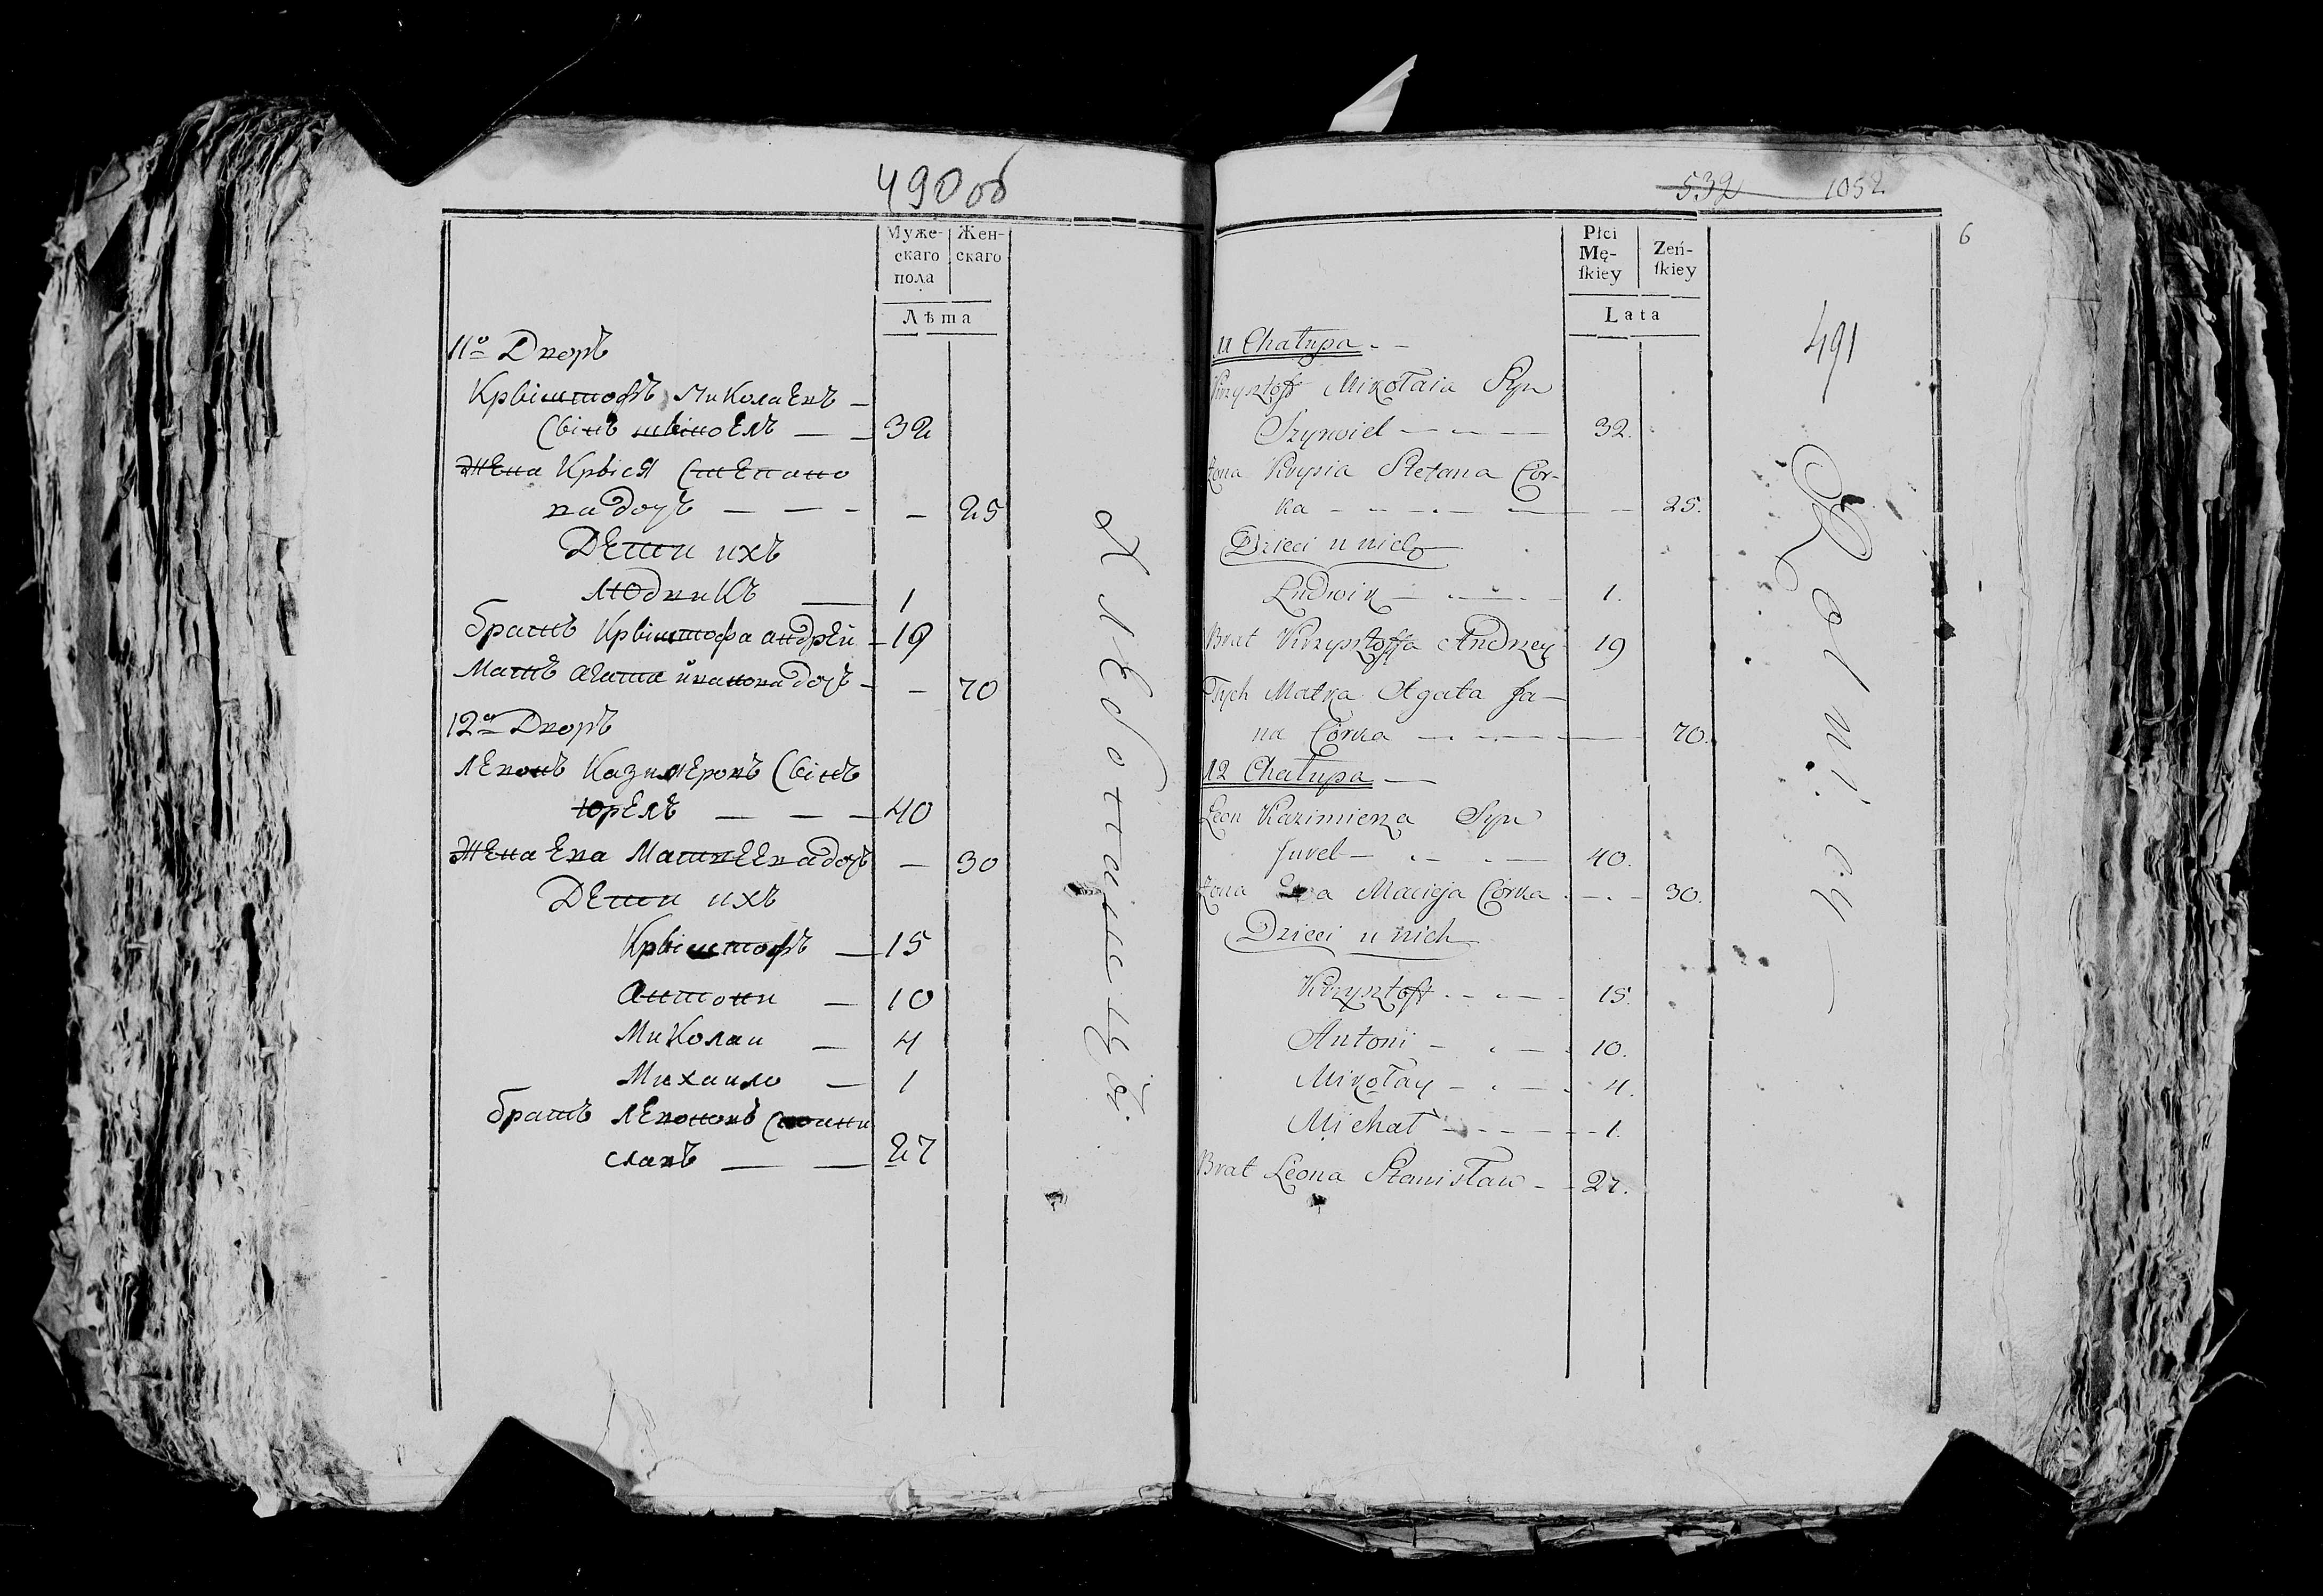 490 об
Муже-
скаго
пола
Жен-
скаго
Лѣта
11о Дворъ
Крыштофъ Миколаевъ —
Сынъ — — 32
Жена Крыся Степано
ва дочъ — — - — 25
Дети ихъ
Людвикъ — 1
братъ Крыштофа андрей - 19
Матъ агата ивановадочъ - — 70
12о Дворъ
Левонъ Казимеровъ Сынъ
Юрелъ — — — 40
Жена Ева Матвеевадочъ — 30
Дети ихъ
Крыштофъ — 15
антони — 10
Миколаи — 4
Михаило — 1
братъ Левоновъ Стани
славъ — — 27
532 1052
6
Płci
Mę-
ſkiey
Zeń-
ſkiey
Lata
491
11 Chałupa . -
Krzysztoff Mikołaia Syn
Szyrwiel — — — 32.
Żona Krysia Stefana Cor-
ka - - - . — — — 25.
Dzieci u nich
Ludwik — . — . - 1.
Brat Krzysztoffa Andrzey 19
Tych Matka Agata Ja-
na Córka — . — . — — 70.
12 Chałupa —
Leon Kazimierza Syn
Jurel — . - . — 40.
Żona Ewa Macieja Córka . — . - 30.
Dzieci u nich
Krzysztoff . - . — - 15.
Antoni - . — . 10.
Mikołay - . — . 4.
Michał - - - - - 1.
Brat Leona Stanisław - - 27.